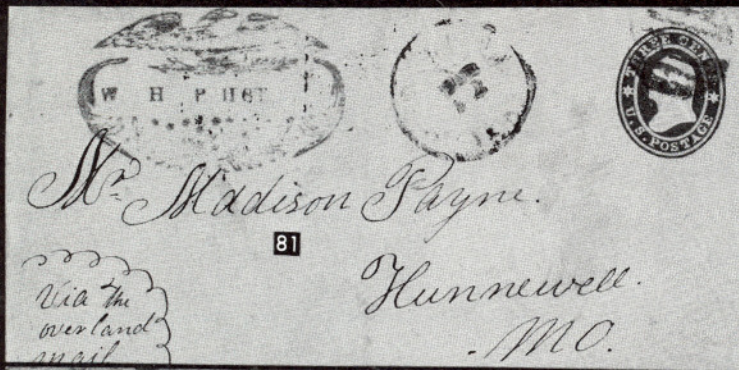 THREE CENTS
U.S. POSTAGE
W H
Mr Madison Payne.
81
Hunnewell.
MO.
Via the
overland
mail